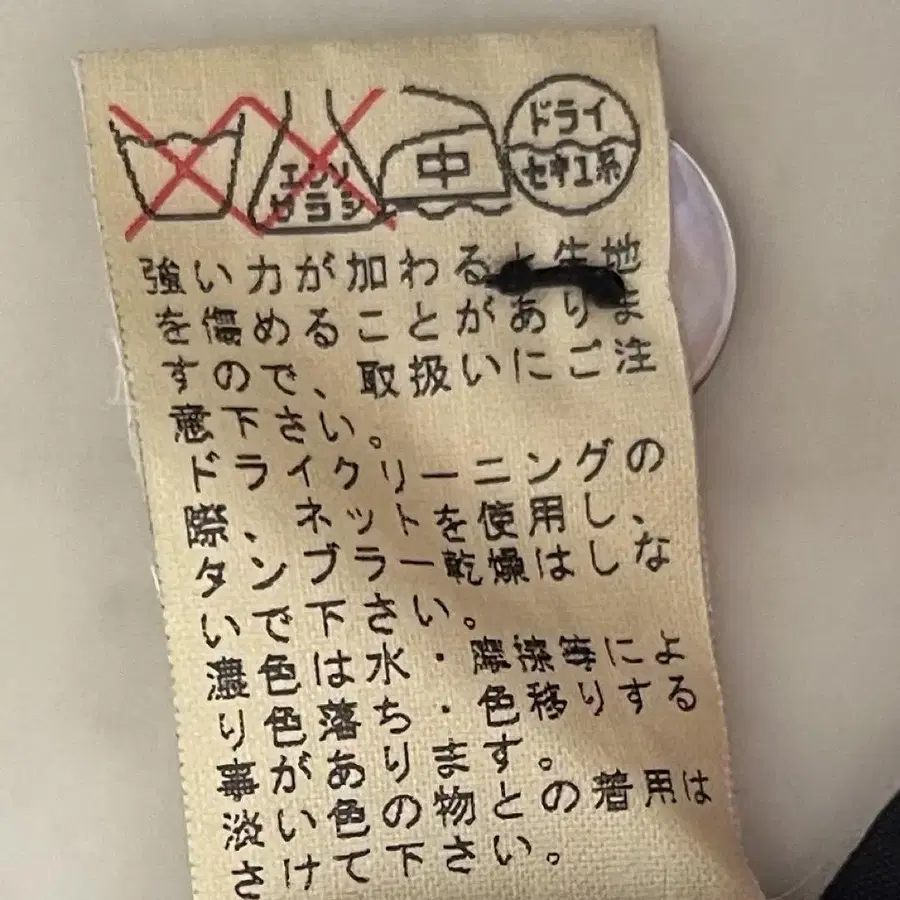 エンソ
サラシ
中
ドライ
セキユ系
強い力が加わると生地
を傷めることがありま
すので、取扱いにご注
意下さい。
ドライクリーニングの
際、ネットを使用し、
タンブラー乾燥はしな
いで下さい。
濃色は水・摩擦等によ
り色落ち・色移りする
事があります。
淡い色の物との着用は
さけて下さい。